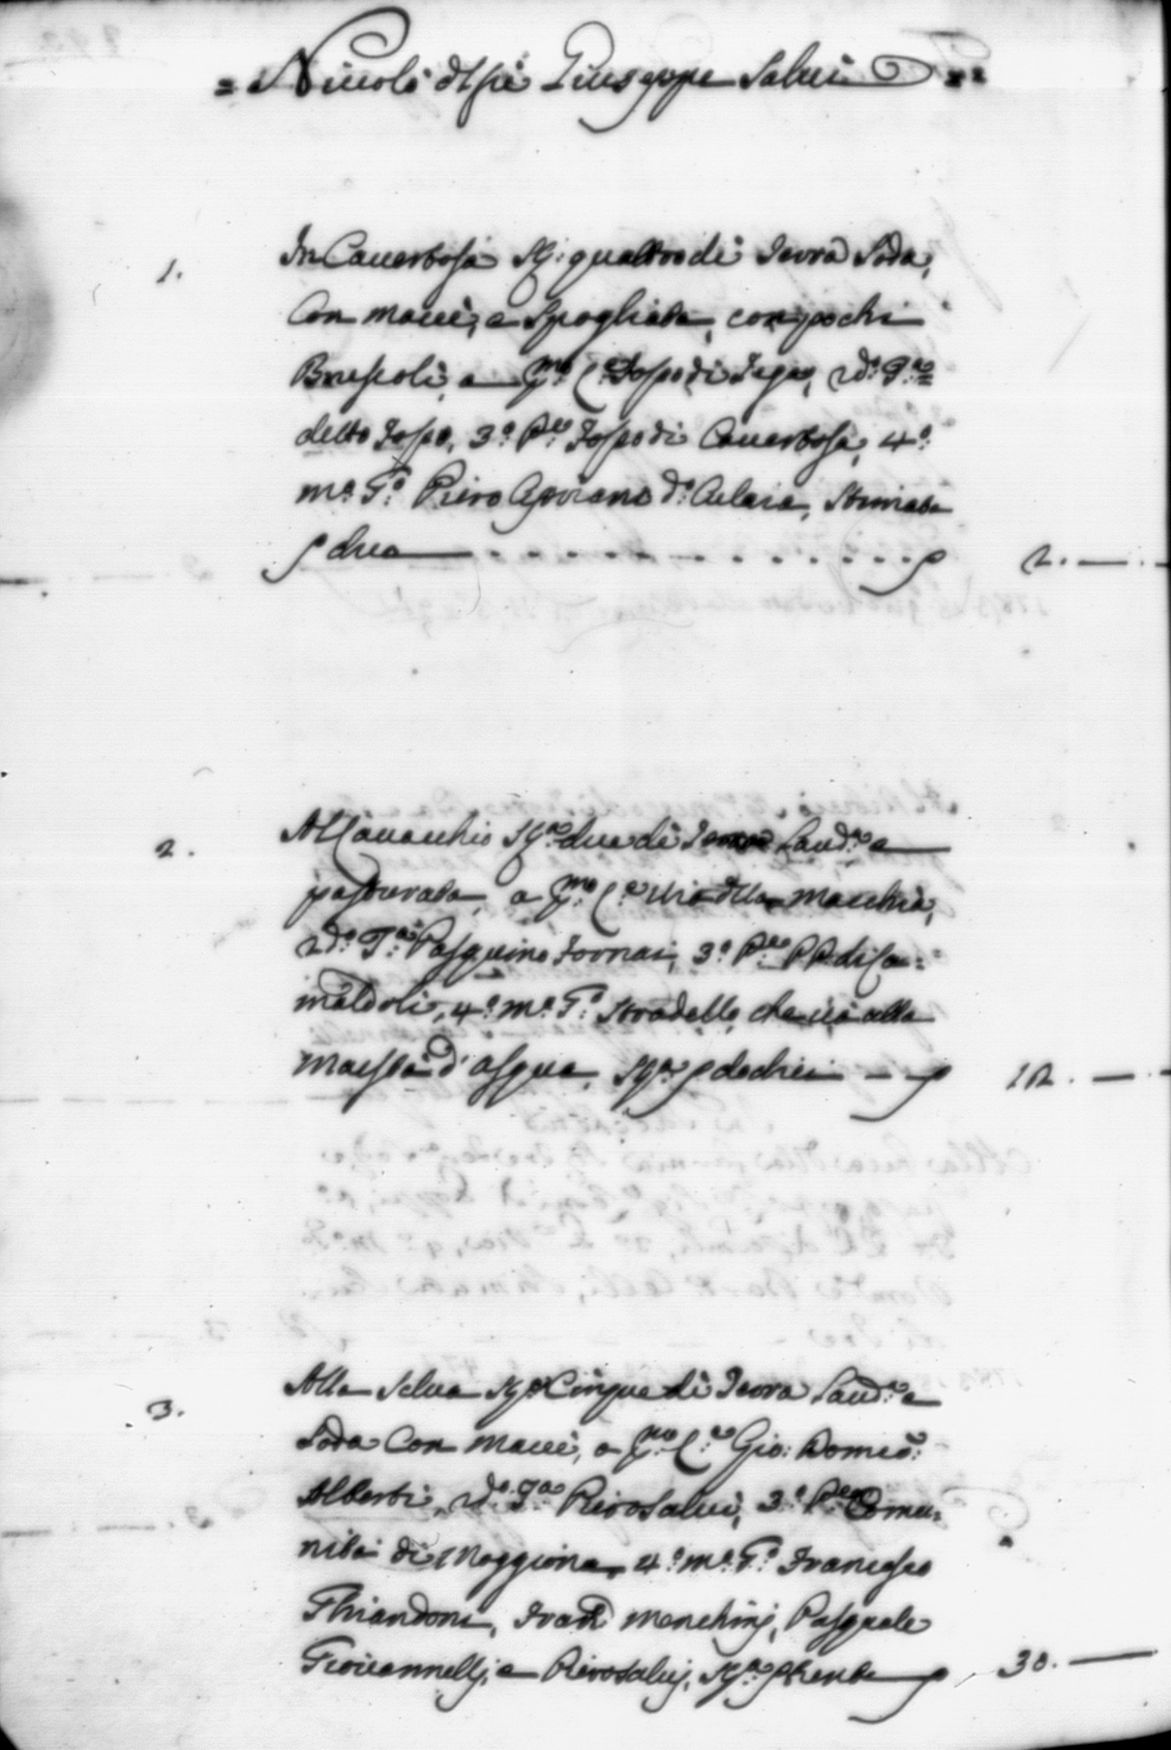 = Niccolò d'Ser Giuseppe Salvi ==
1. In Caverbosa St: quattro di Terra Soda,
Con macie, e Spogliata, con pochi
Bruscoli, a P.mo C.e Fosso di Tega, 2.do T.a
detto Fosso, 3.o P.te Fosso di Caverbosa, 4.o
m.o T.o Piero Stimata
p due - - - p 2. —
2. Al Cavacchio St.a due di Terra Laud.a e
pasturata, a P.mo C.e Via della Macchia,
2.do T.a Pasquino Fornai, 3.o P.te PP. di Ca:
maldoli, 4.o m.o T.o Stradello che và alla
Massa d'asqua, St.a p dodici — p 12. —
3. Alla Selva St.a Cinque di Terra Laud.a e
Soda Con macie, a P.mo C.e Gio: Domco:
Alberti, 2.do T.a Piero Salvi, 3.o P.te Comu:
nità di Moggiona, 4.o m.o T.o Francesco
Ghiandoni, Menchinj, Pasquale
Giovannellj, e Piero Salvj, St.a p Trenta p 30. —